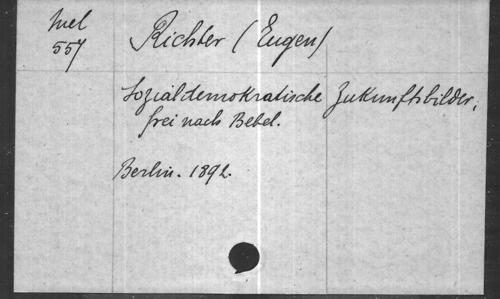 Mel
557
Richter (Eugen)
Sozialdemokratische Zukunftsbilder,
frei nach Bebel.
Berlin. 1892.